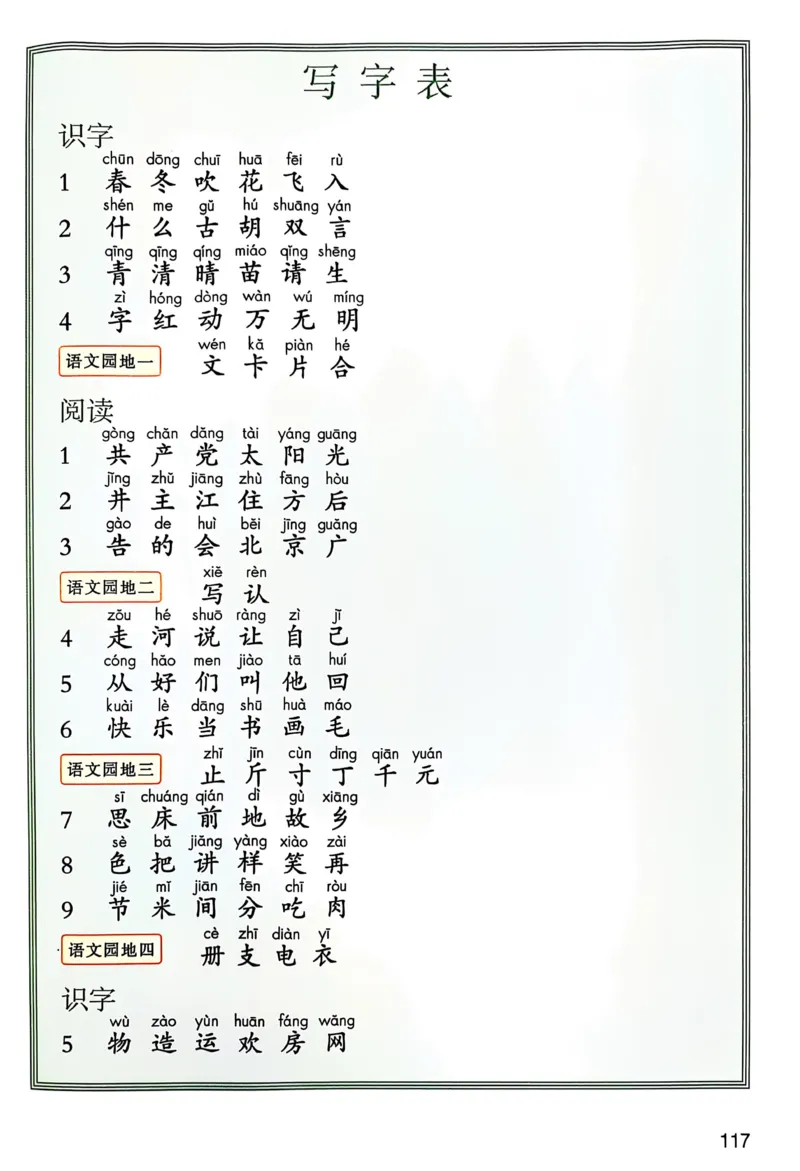 写字表
识字
chūn dōng chuī huā fēi rù
1 春 冬 吹 花 飞 入
shén me gǔ hú shuāng yán
2 什 么 古 胡 双 言
qīng qīng qíng miáo qǐng shēng
3 青 清 晴 苗 请 生
zì hóng dòng wàn wú míng
4 字 红 动 万 无 明
wén kǎ piàn hé
语文园地一 文 卡 片 合
阅读
gòng chǎn dǎng tài yáng guāng
1 共 产 党 太 阳 光
jǐng zhǔ jiāng zhù fāng hòu
2 井 主 江 住 方 后
gào de huì běi jīng guǎng
3 告 的 会 北 京 广
xiě rèn
语文园地二 写 认
zǒu hé shuō ràng zì jǐ
4 走 河 说 让 自 己
cóng hǎo men jiào tā huí
5 从 好 们 叫 他 回
kuài lè dāng shū huà máo
6 快 乐 当 书 画 毛
zhǐ jīn cùn dīng qiān yuán
语文园地三 止 斤 寸 丁 千 元
sī chuáng qián dì gù xiāng
7 思 床 前 地 故 乡
sè bǎ jiǎng yàng xiào zài
8 色 把 讲 样 笑 再
jié mǐ jiān fēn chī ròu
9 节 米 间 分 吃 肉
cè zhī diàn yī
语文园地四 册 支 电 衣
识字
wù zào yùn huān fáng wǎng
5 物 造 运 欢 房 网
117